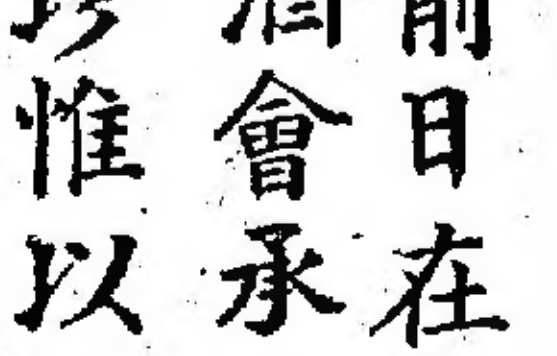 前日在
會承
惟以